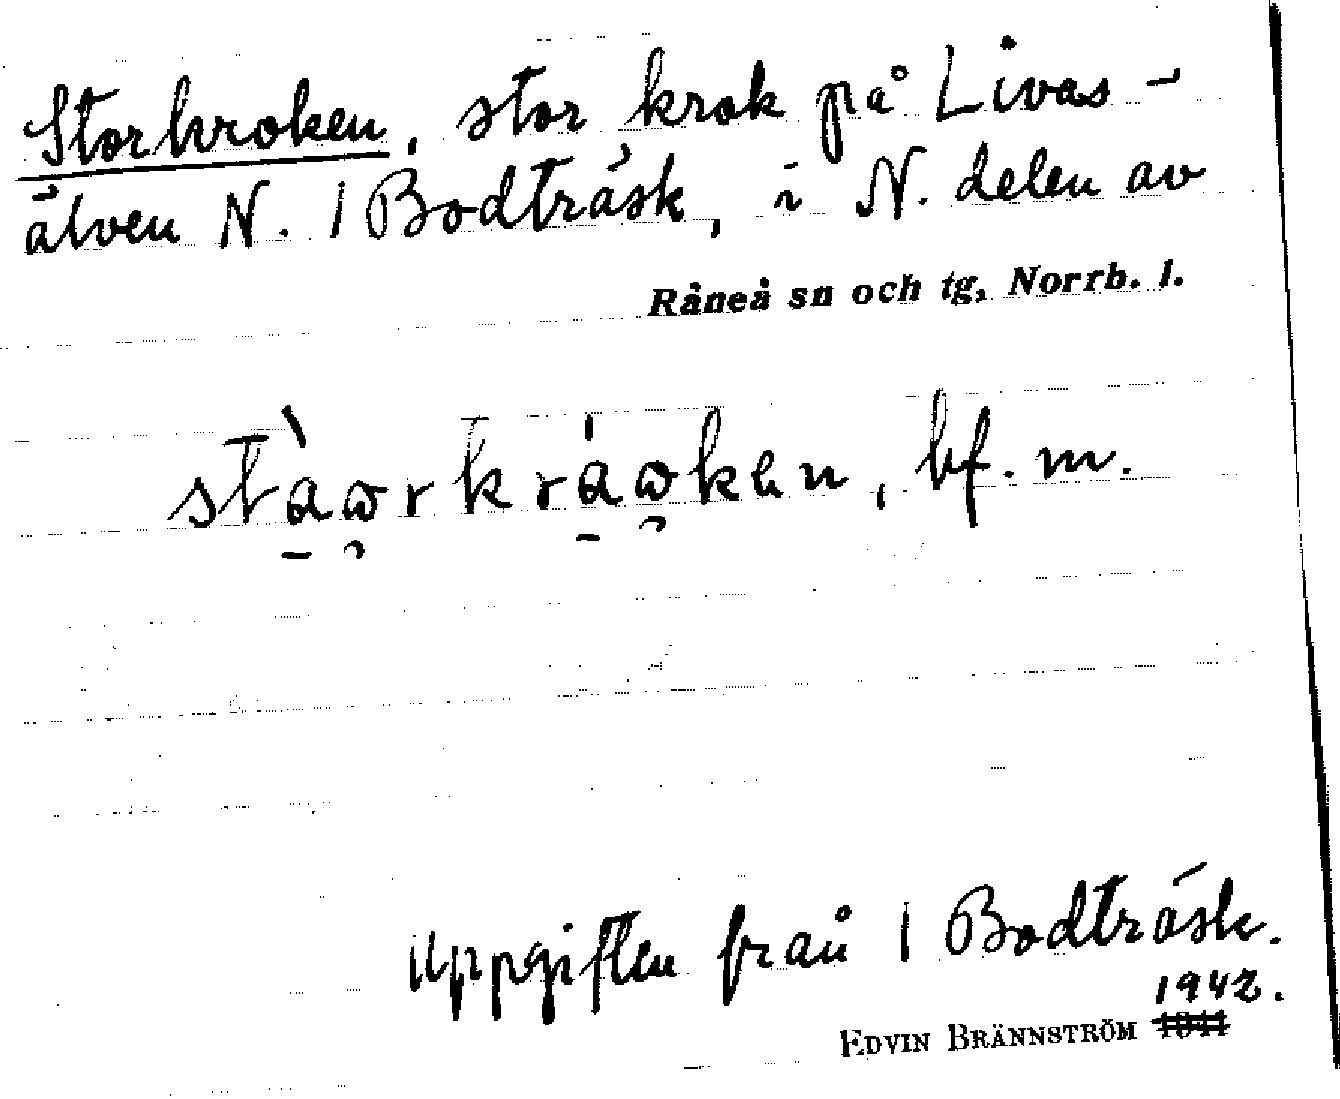 Storkroken, stor krok på Livas-
älven N. 1 Bodträsk, i N. delen av
Råneå sn och tg, Norrb. l.
bf. m.
Uppgiften från 1 Bodträsk.
1942.
EDVIN BRÄNNSTRÖM 1941